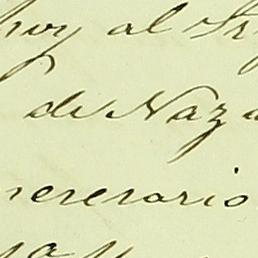 hoy al Sr
de Naza
neresario